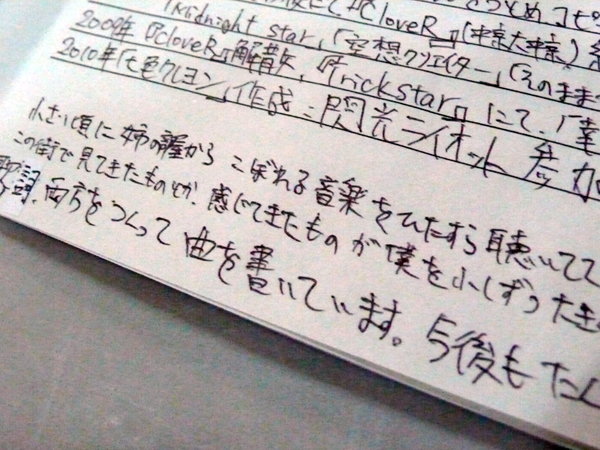 にて『CloveR』(東京大東京)
「Midnight star」「空想クリエイター」「そのまま
2009年『CloveR』解散、『Trickstar』にて、「幸
2010年「七色クレヨン」作成：閃光ライオット 参加
小さい頃に姉の部屋から こぼれる音楽をひたすら聴いてて
この街で見てきたものや、感じてきたものが僕を小しずつ
歌詞、両方をつくって曲を書いています。
今後もたく